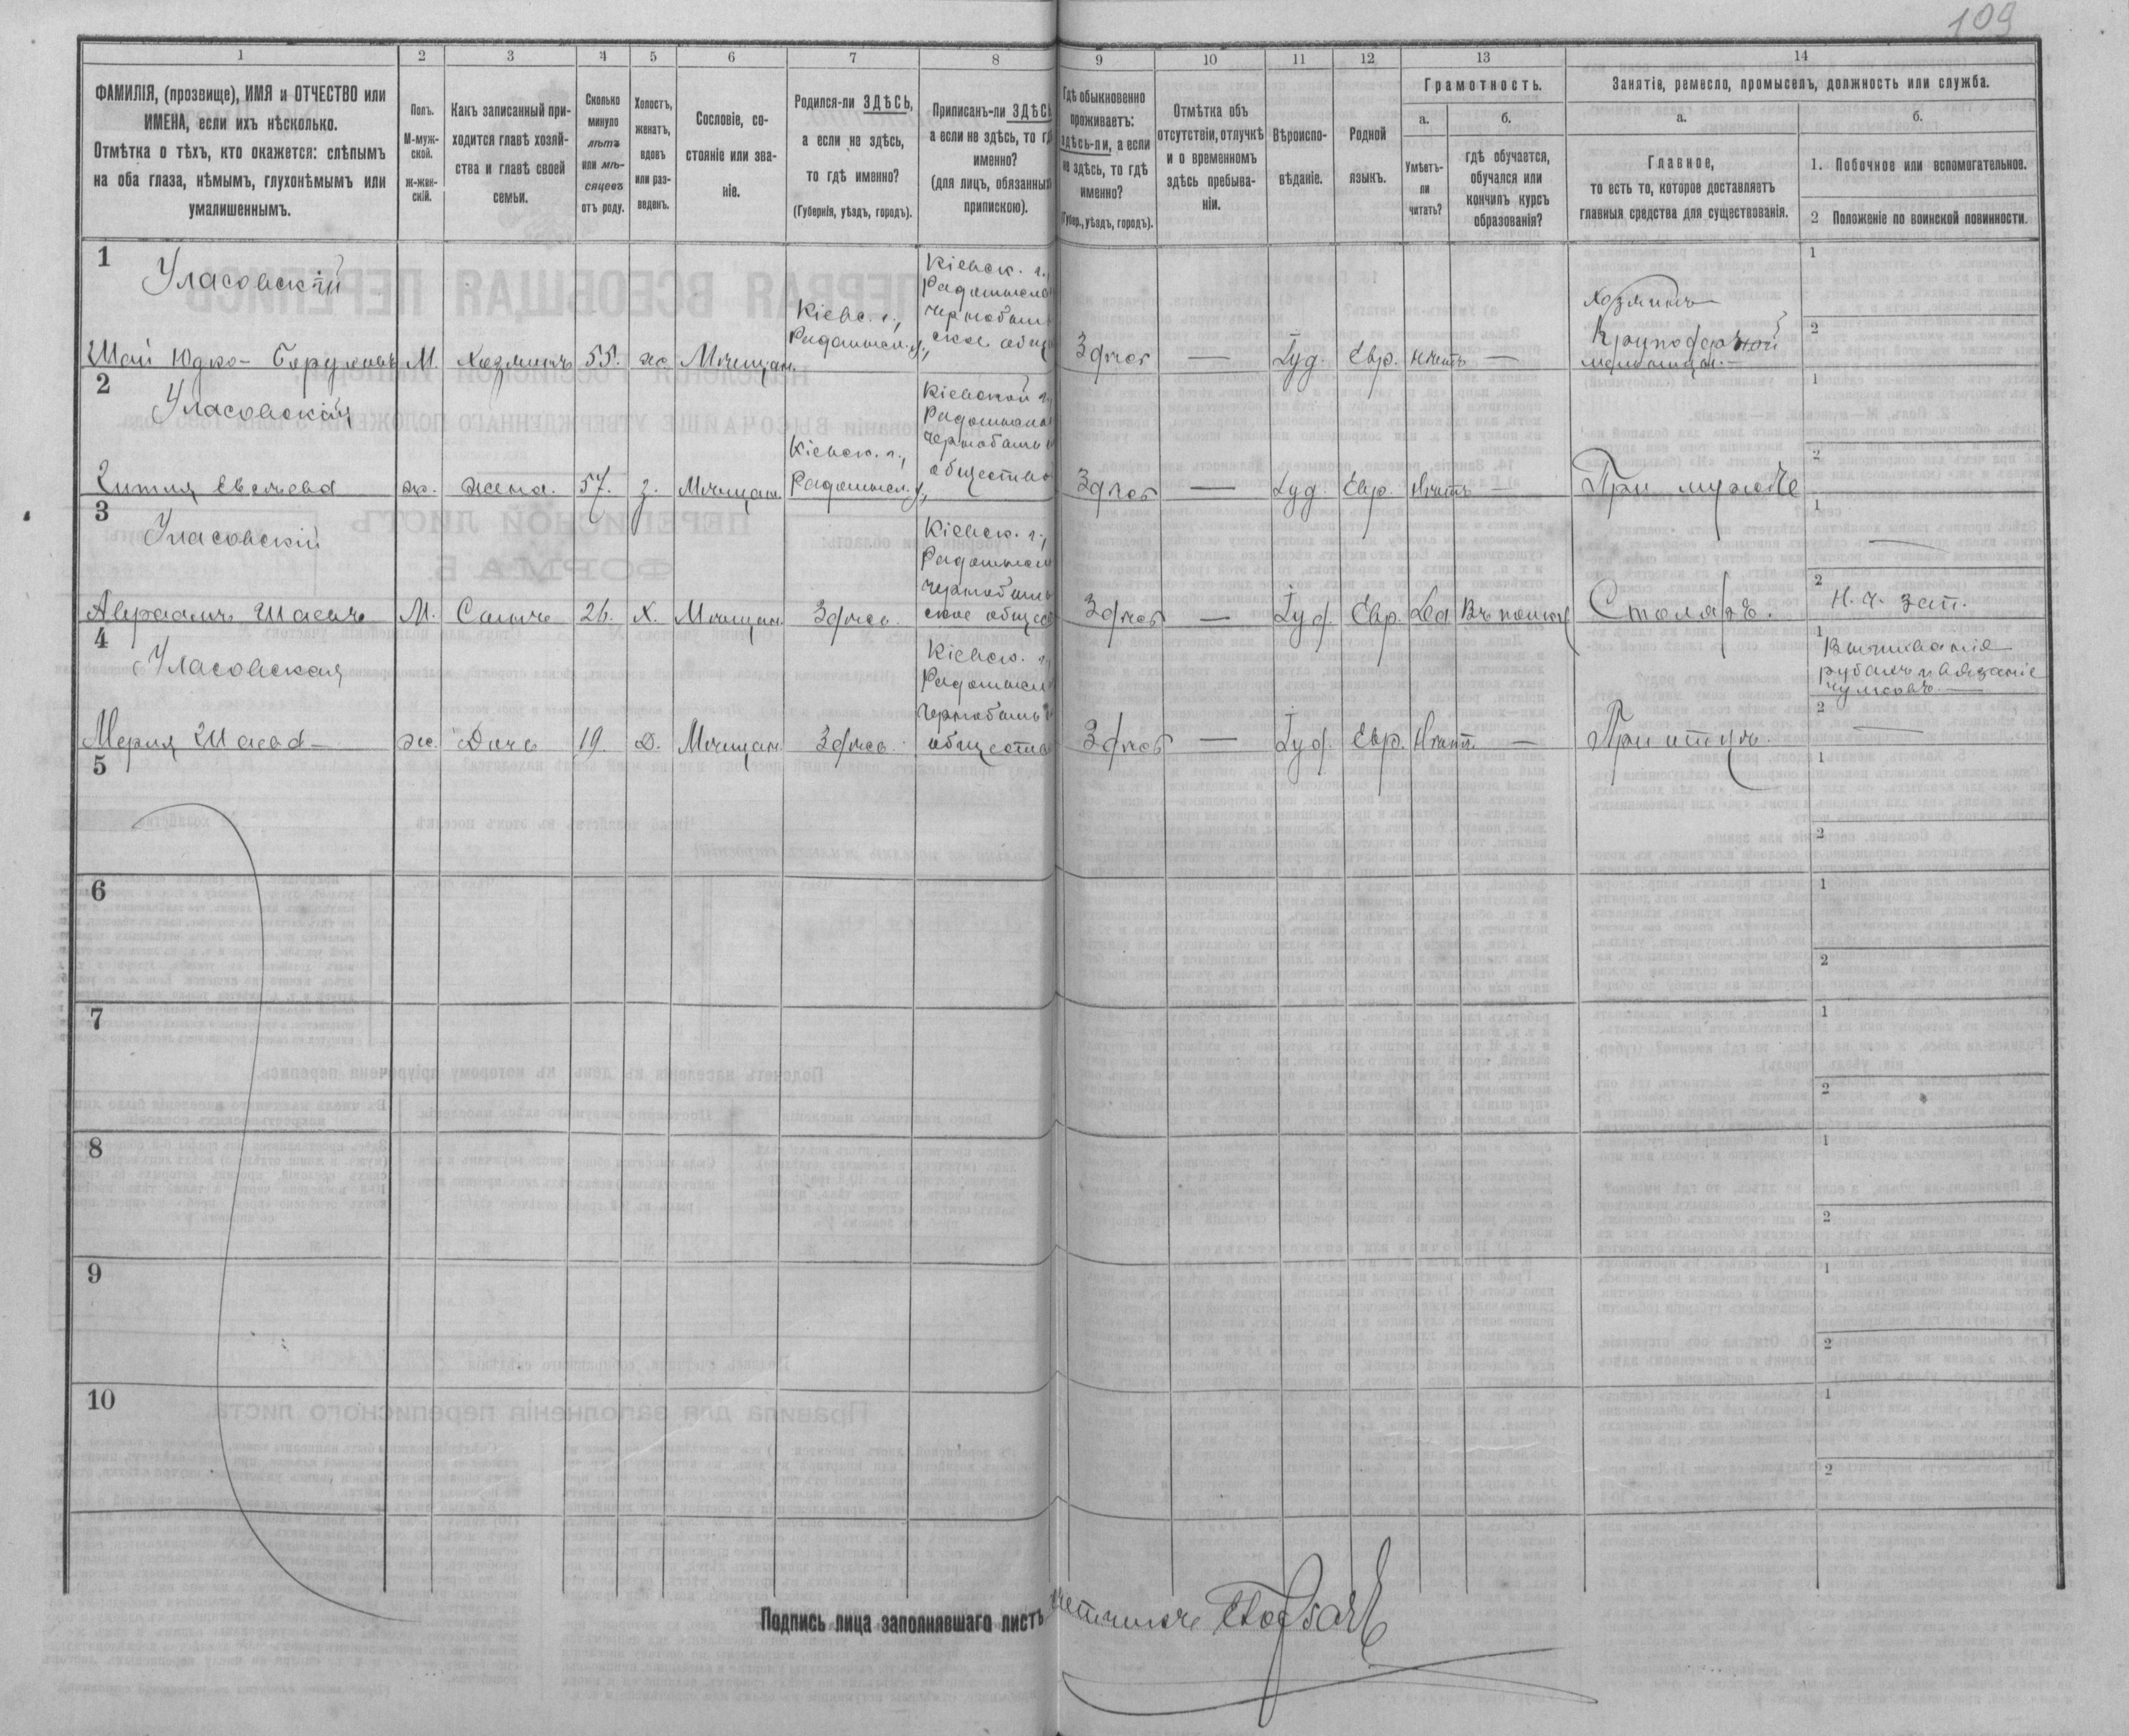 109
1 2 3 4 5 6 7 8 9 10 11 12 13 14
ФАМИЛІЯ, (прозвище), ИМЯ и ОТЧЕСТВО или
ИМЕНА, если ихъ нѣсколько.
Отмѣтка о тѣхъ, кто окажется: слѣпымъ
на оба глаза, нѣмымъ, глухонѣмымъ или
умалишеннымъ.
Полъ.
М-муж-
ской.
ж-жен-
скій.
Какъ записанный при-
ходится главѣ хозяй-
ства и главѣ своей
семьи.
Сколько
минуло
лѣтъ
или мѣ-
сяцевъ
отъ роду.
Холостъ,
женатъ,
вдовъ
или раз-
веденъ.
Сословіе, со-
стояніе или зва-
ніе.
Родился-ли ЗДѢСЬ,
а если не здѣсь,
то гдѣ именно?
(Губернія, уѣздъ, городъ).
Приписанъ-ли ЗДѢСЬ
а если не здѣсь, то гдѣ
именно?
(для лицъ, обязанныхъ
припискою).
Гдѣ обыкновенно
проживаетъ:
здѣсь-ли, а если
не здѣсь, то гдѣ
именно?
(Губер., уѣздъ, городъ).
Отмѣтка объ
отсутствіи, отлучкѣ
и о временномъ
здѣсь пребыва-
ніи.
Вѣроиспо-
вѣданіе.
Родной
языкъ.
Грамотность.
а.
Умѣетъ-
ли
читать?
б.
гдѣ обучается,
обучался или
кончилъ курсъ
образованія?
Занятіе, ремесло, промыселъ, должность или служба.
а.
Главное,
то есть то, которое доставляетъ
главныя средства для существованія.
б.
1. Побочное или вспомогательное.
2 Положеніе по воинской повинности.
1
Уласовскій
Шая Юдко-Беруховъ
М.
Хозяинъ
55.
ж.
Мѣщан.
Кіевс. г.,
Радомысл. у.,
Кіевск. г.,
Радомысл
Чернобыль
ское общ
Здѣсь
—
Іуд.
Евр.
Нѣтъ
—
Хозяинъ
Крупоderной
мельницы.
1
2
2
Уласовская
Евсеева
ж.
жена.
57.
з.
Мѣщан.
Кіевск. г.,
Радомысл. у.,
Кіевской г.,
Радомысл
Чернобыль
общество
Здѣсь
—
Іуд.
Евр.
Нѣтъ
—
При мужѣ
1
2
3
Уласовскій
Авраамъ Шаевъ
М.
Сынъ
26.
Х.
Мѣщан.
Здѣсь
Кіевск. г.,
Радомысл
Чернобыль
ское общес
Здѣсь
—
Іуд.
Евр.
Да
Столяръ.
1 —
2 Н. ч. зап.
4
Уласовская
Мерия Шаева
ж.
Дочь
19.
Д.
Мѣщан.
Здѣсь
Кіевск. г.
Радомысл
Чернобыль
общество
Здѣсь
—
Іуд.
Евр.
Нѣтъ
—
При отцѣ
1 Вышиваніе
рубахъ и вязаніе
чулковъ.
2 —
5
1
2
6
1
2
7
1
2
8
1
2
9
1
2
10
1
2
Подпись лица заполнявшаго листъ